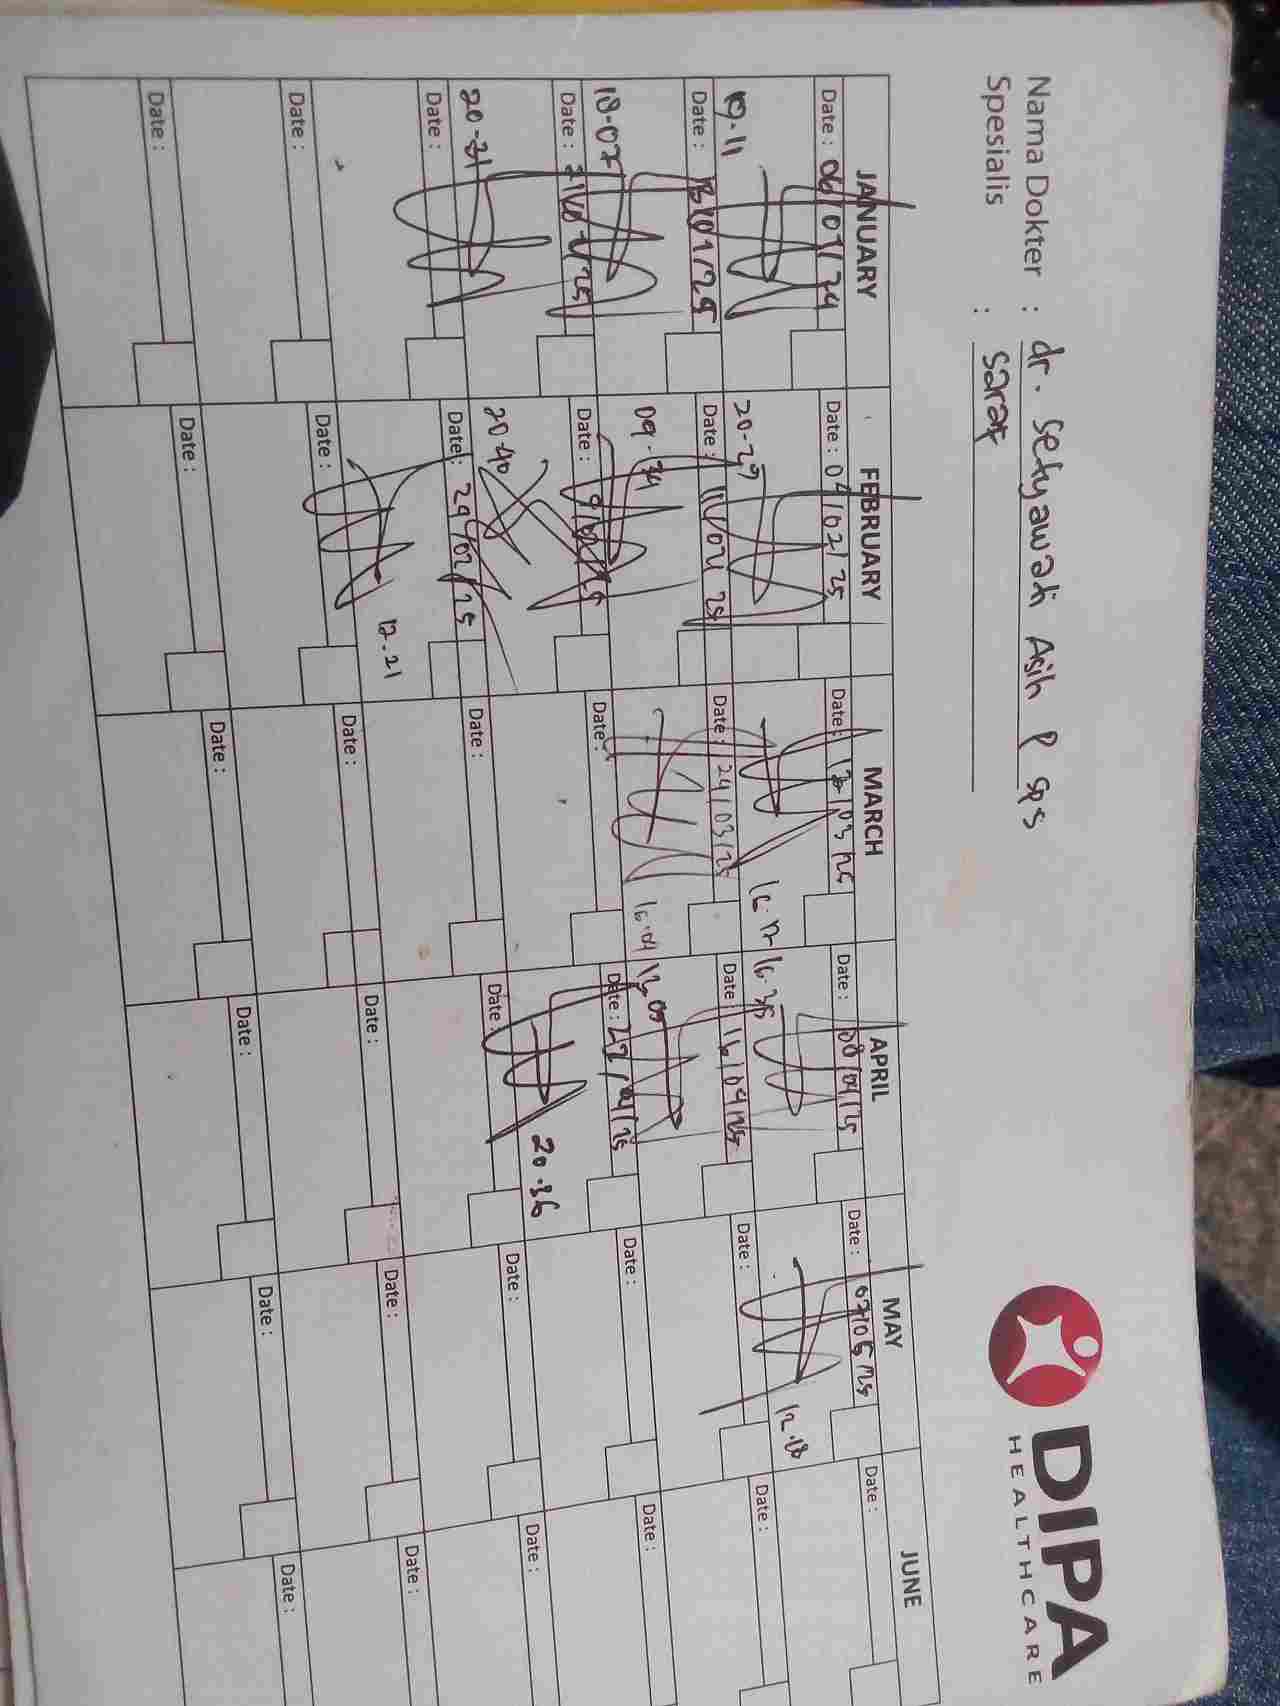 Nama Dokter : dr. Setyawati Asih P Sps
Spesialis : Saraf
DIPA
HEALTHCARE
JANUARY FEBRUARY MARCH APRIL MAY JUNE
Date : 06/01/24 Date : 04/02/25 Date : 13/03/25 Date : 08/04/25 Date : 07/05/25 Date :
19.11 20.29 16.17 16.35 12.18
Date : 13/01/25 Date : 11/02/25 Date : 24/03/25 Date : 16/04/25 Date : Date :
18.07 09.34 16.04 13.09
Date : 21/01/25 Date : Date : Date : 22/04/25 Date : Date :
20.31 20.40 20.36
Date : Date : 24/02/25 Date : Date : Date : Date :
12.21
Date : Date : Date : Date : Date : Date :
Date : Date : Date : Date : Date : Date :